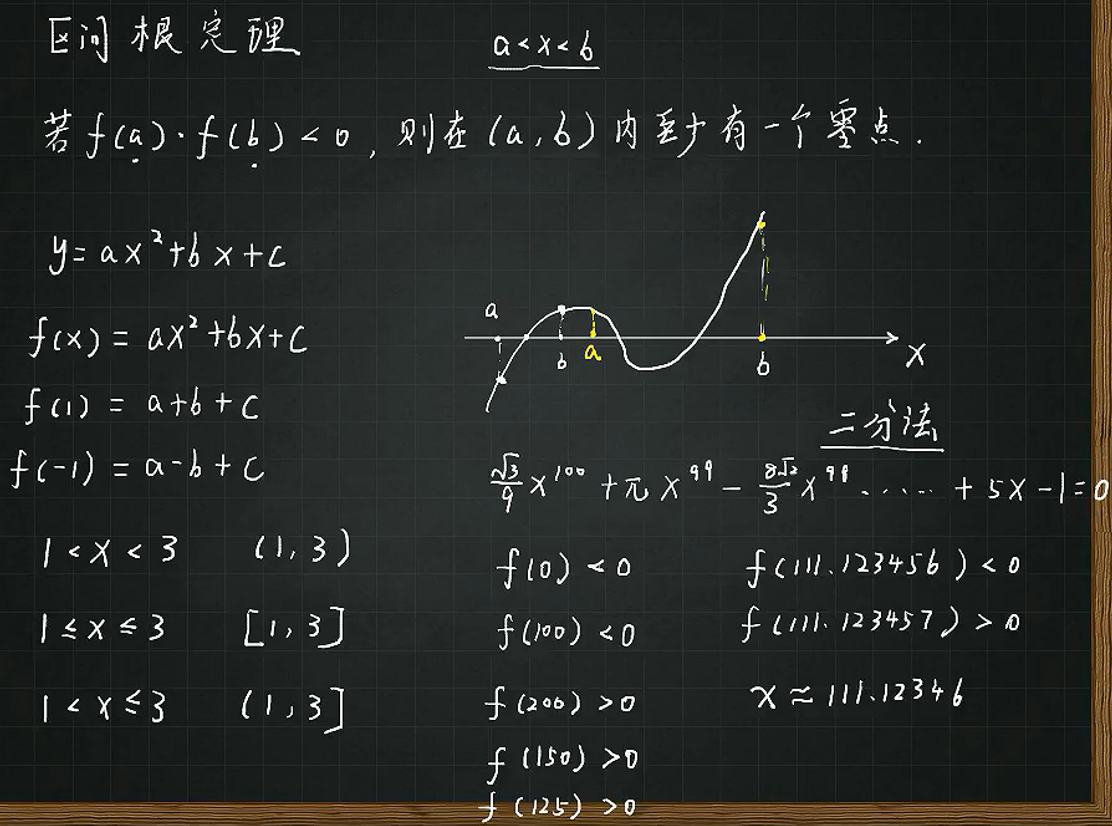 区间根定理
a<x<b
若 f(a)·f(b)<0, 则在 (a,b) 内至少有一个零点.
y=ax²+bx+c
f(x)=ax²+bx+c
f(1)=a+b+c
f(-1)=a-b+c
1<x<3 (1,3)
1≤x≤3 [1,3]
1<x≤3 (1,3]
a
b a b x
二分法
√3/9 x¹⁰⁰+πx⁹⁹-8√2/3 x⁹⁸......+5x-1=0
f(0)<0
f(100)<0
f(200)>0
f(150)>0
f(125)>0
f(111.123456)<0
f(111.123457)>0
x≈111.12346